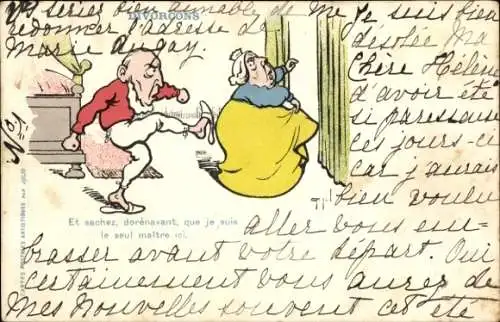 Vs seriez bien aimable de me
redonner l'adresse de
Marie Augay.
DIVORÇONS
Je suis bien
désolée Ma
Chère Hélène
d'avoir été
si paresseuse
ces jours-ci
car j'aurais
bien voulu
aller vous em-
brasser avant votre départ. Oui
certainement vous aurez de
mes nouvelles souvent cet été
Et sachez, dorénavant, que je suis
le seul maître ici.
No 1
CARTES POSTALES ARTISTIQUES